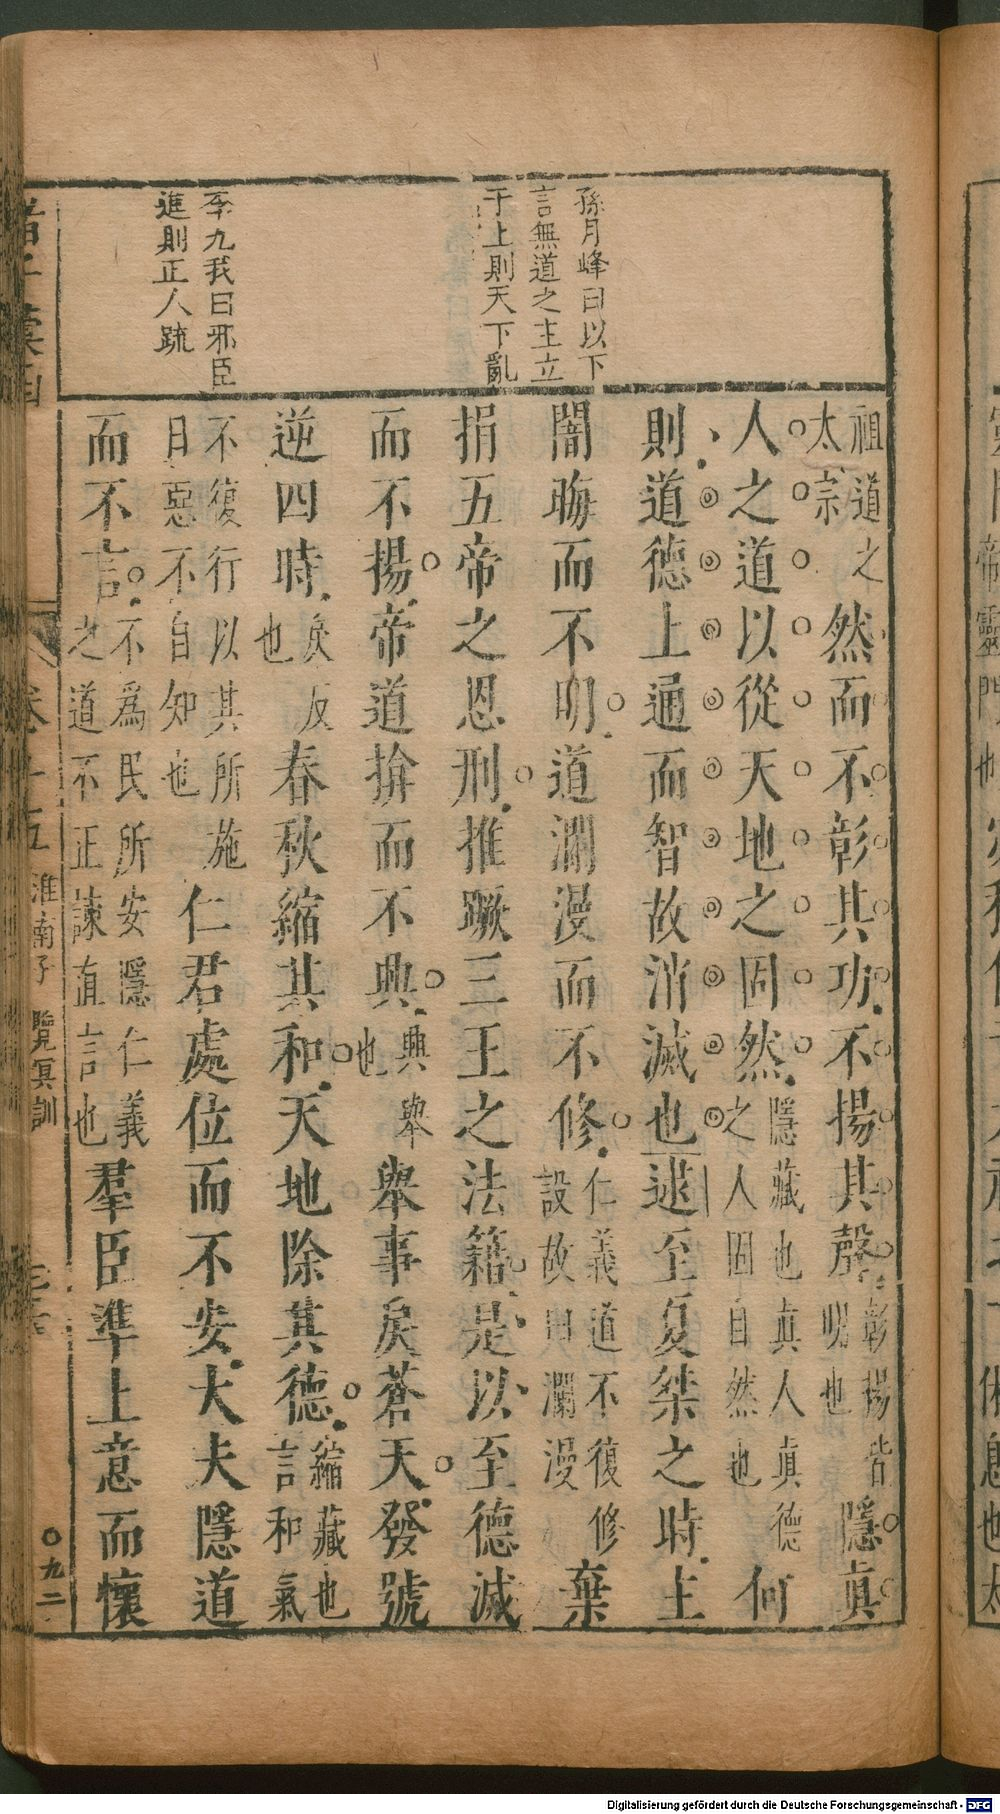 孫月峰曰以下
言無道之主立
于上則天下亂
李九我曰邪臣
進則正人疏
祖道之太宗然而不彰其功不揚其聲彰揚皆明也隱真
人之道以從天地之固然隱藏也真人真德之人固自然也何
則道德上通而智故消滅也逮至夏桀之時主
闇晦而不明道瀾漫而不修仁義道不復修設故曰瀾漫棄
捐五帝之恩刑推蹶三王之法籍是以至德滅
而不揚帝道揜而不興興舉也舉事戾蒼天發號
逆四時戾反也春秋縮其和天地除其德縮藏也言和氣
不復行以其所施日惡不自知也仁君處位而不安大夫隱道
而不言不為民所安隱仁義之道不正諫直言也羣臣準上意而懷
卷十五
淮南子
覽冥訓
〇九二
Digitalisierung gefördert durch die Deutsche Forschungsgemeinschaft - DFG